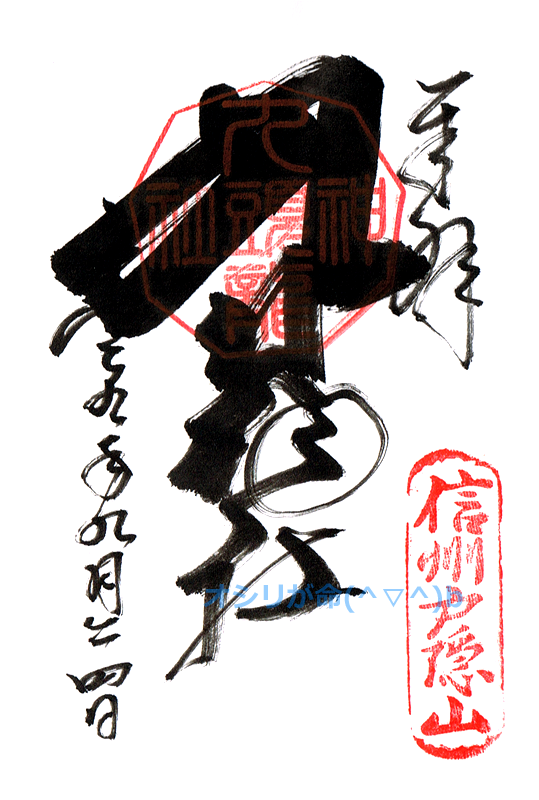 奉拝
信州戸隠山
九頭龍社
九頭龍神社
二九年九月二四日
オシリが命(^▽^)b